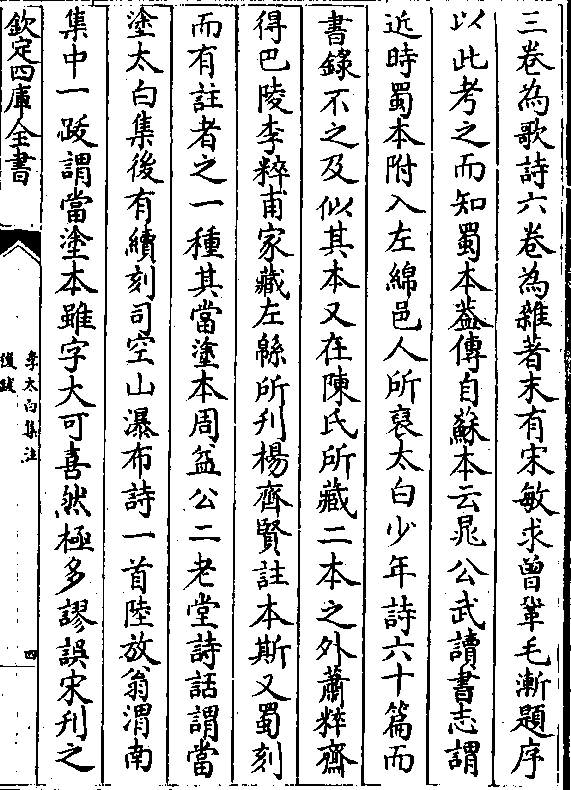 三卷為歌詩六卷為雜著末有宋敏求曾鞏毛漸題序
以此考之而知蜀本葢傳自蘇本云晁公武讀書志謂
近時蜀本附入左綿邑人所裒太白少年詩六十篇而
書錄不之及似其本又在陳氏所藏二本之外蕭粹齋
得巴陵李粹甫家藏左緜所刋楊齊賢註本斯又蜀刻
而有註者之一種其當塗本周益公二老堂詩話謂當
塗太白集後有續刻司空山瀑布詩一首陸放翁渭南
集中一跋謂當塗本雖字大可喜然極多謬誤宋刋之
欽定四庫全書
李太白集注
後跋
四